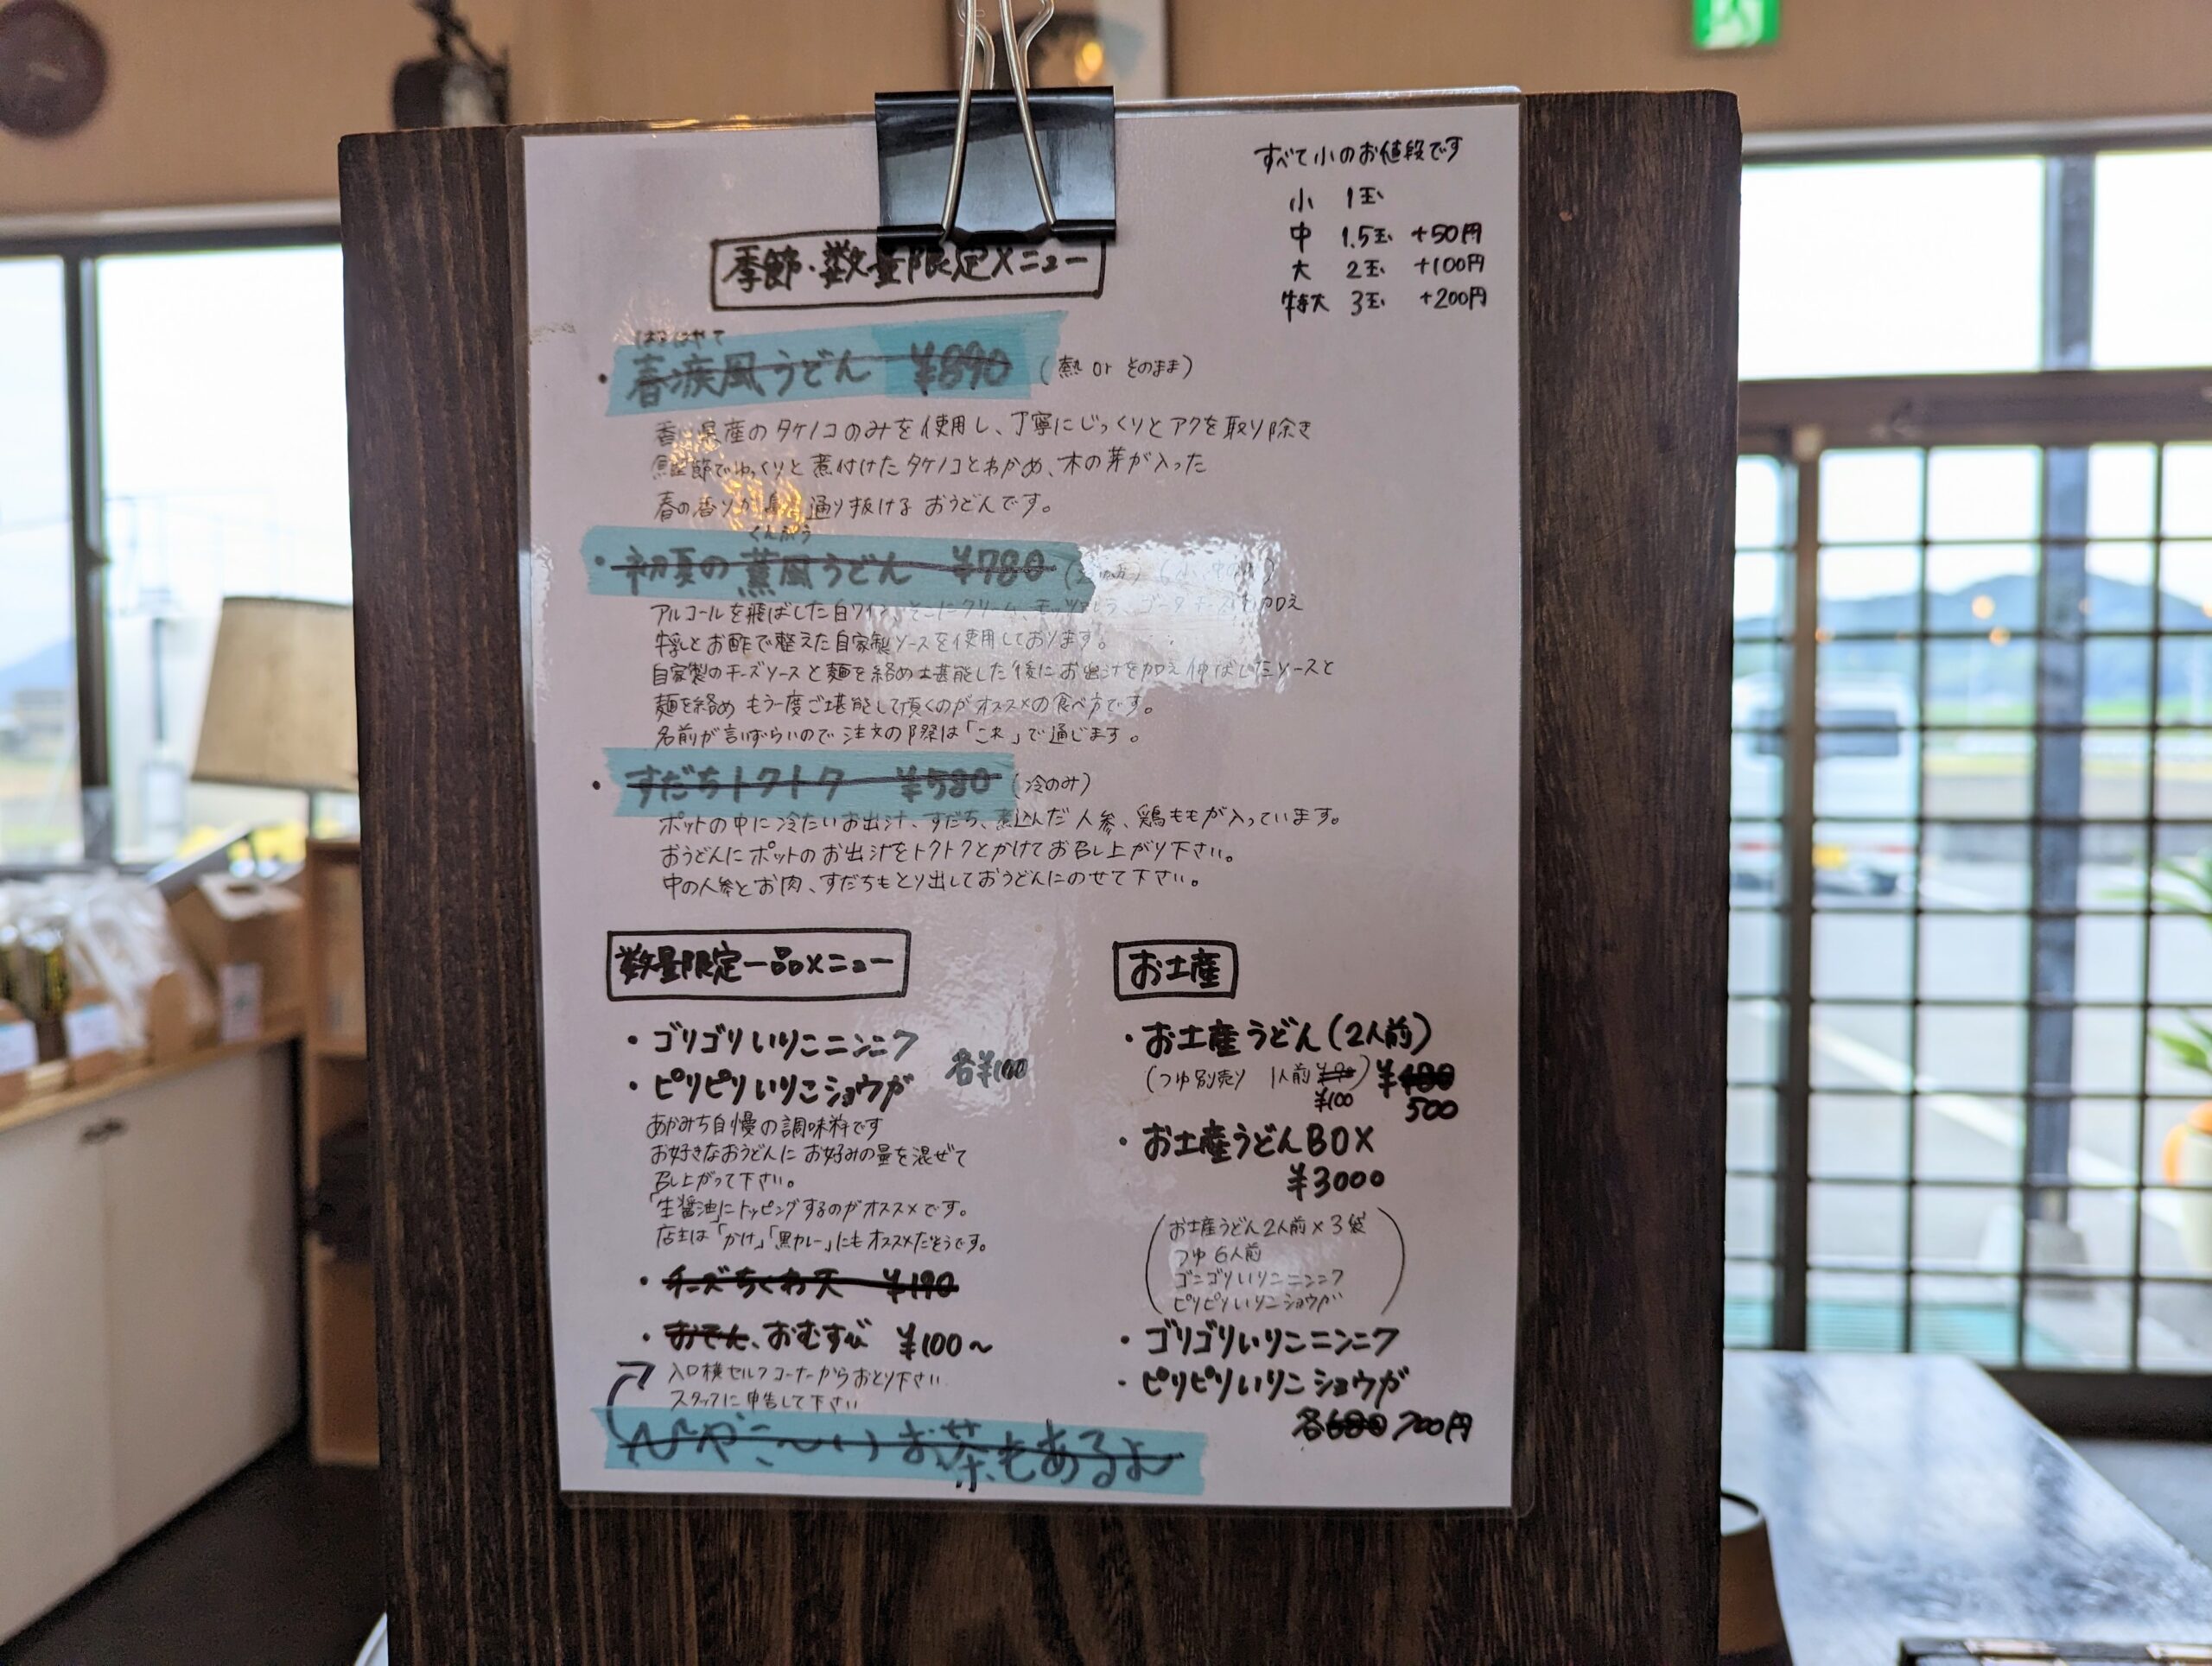 すべて小のお値段です
小 1玉
中 1.5玉 +50円
大 2玉 +100円
特大 3玉 +200円
季節・数量限定メニュー
はるはやて
・春疾風うどん ¥890 (熱 or そのまま)
香川県産のタケノコのみを使用し、丁寧にじっくりとアクを取り除き
節でゆっくりと煮付けたタケノコとわかめ、木の芽が入った
春の香りが鼻を通り抜けるおうどんです。
くんぷう
・初夏の薫風うどん ¥780
アルコールを飛ばした白ワイン、そこにクリーム、モッツァレラ、ゴーダチーズを加え
牛乳とお酢で整えた自家製ソースを使用しております。
自家製のチーズソースと麺を絡め堪能した後にお出汁を加え伸ばしたソースと
麺を絡めもう一度ご堪能して頂くのがオススメの食べ方です。
名前が言いずらいので注文の際は「これ」で通じます。
・すだちトクトク ¥580 (冷のみ)
ポットの中に冷たいお出汁、すだち、煮込んだ人参、鶏ももが入っています。
おうどんにポットのお出汁をトクトクとかけてお召し上がり下さい。
中の人参とお肉、すだちもとり出しておうどんにのせて下さい。
数量限定一品メニュー
・ゴリゴリいりこニンニク
・ピリピリいりこショウガ
各¥100
あかみち自慢の調味料です
お好きなおうどんにお好みの量を混ぜて
召し上がって下さい。
「生醤油」にトッピングするのがオススメです。
店主は「かけ」「黒カレー」にもオススメだそうです。
・チーズちくわ天 ¥190
・おでん、おむすび ¥100〜
入口横セルフコーナーからおとり下さい
スタッフに申告して下さい
ひやこ〜いお茶もあるよ
お土産
・お土産うどん(2人前)
(つゆ別売り 1人前 ¥90) ¥480
¥100
500
・お土産うどんBOX
¥3000
お土産うどん2人前×3袋
つゆ 6人前
ゴリゴリいりこニンニク
ピリピリいりこショウガ
・ゴリゴリいりこニンニク
・ピリピリいりこショウガ
各680 700円